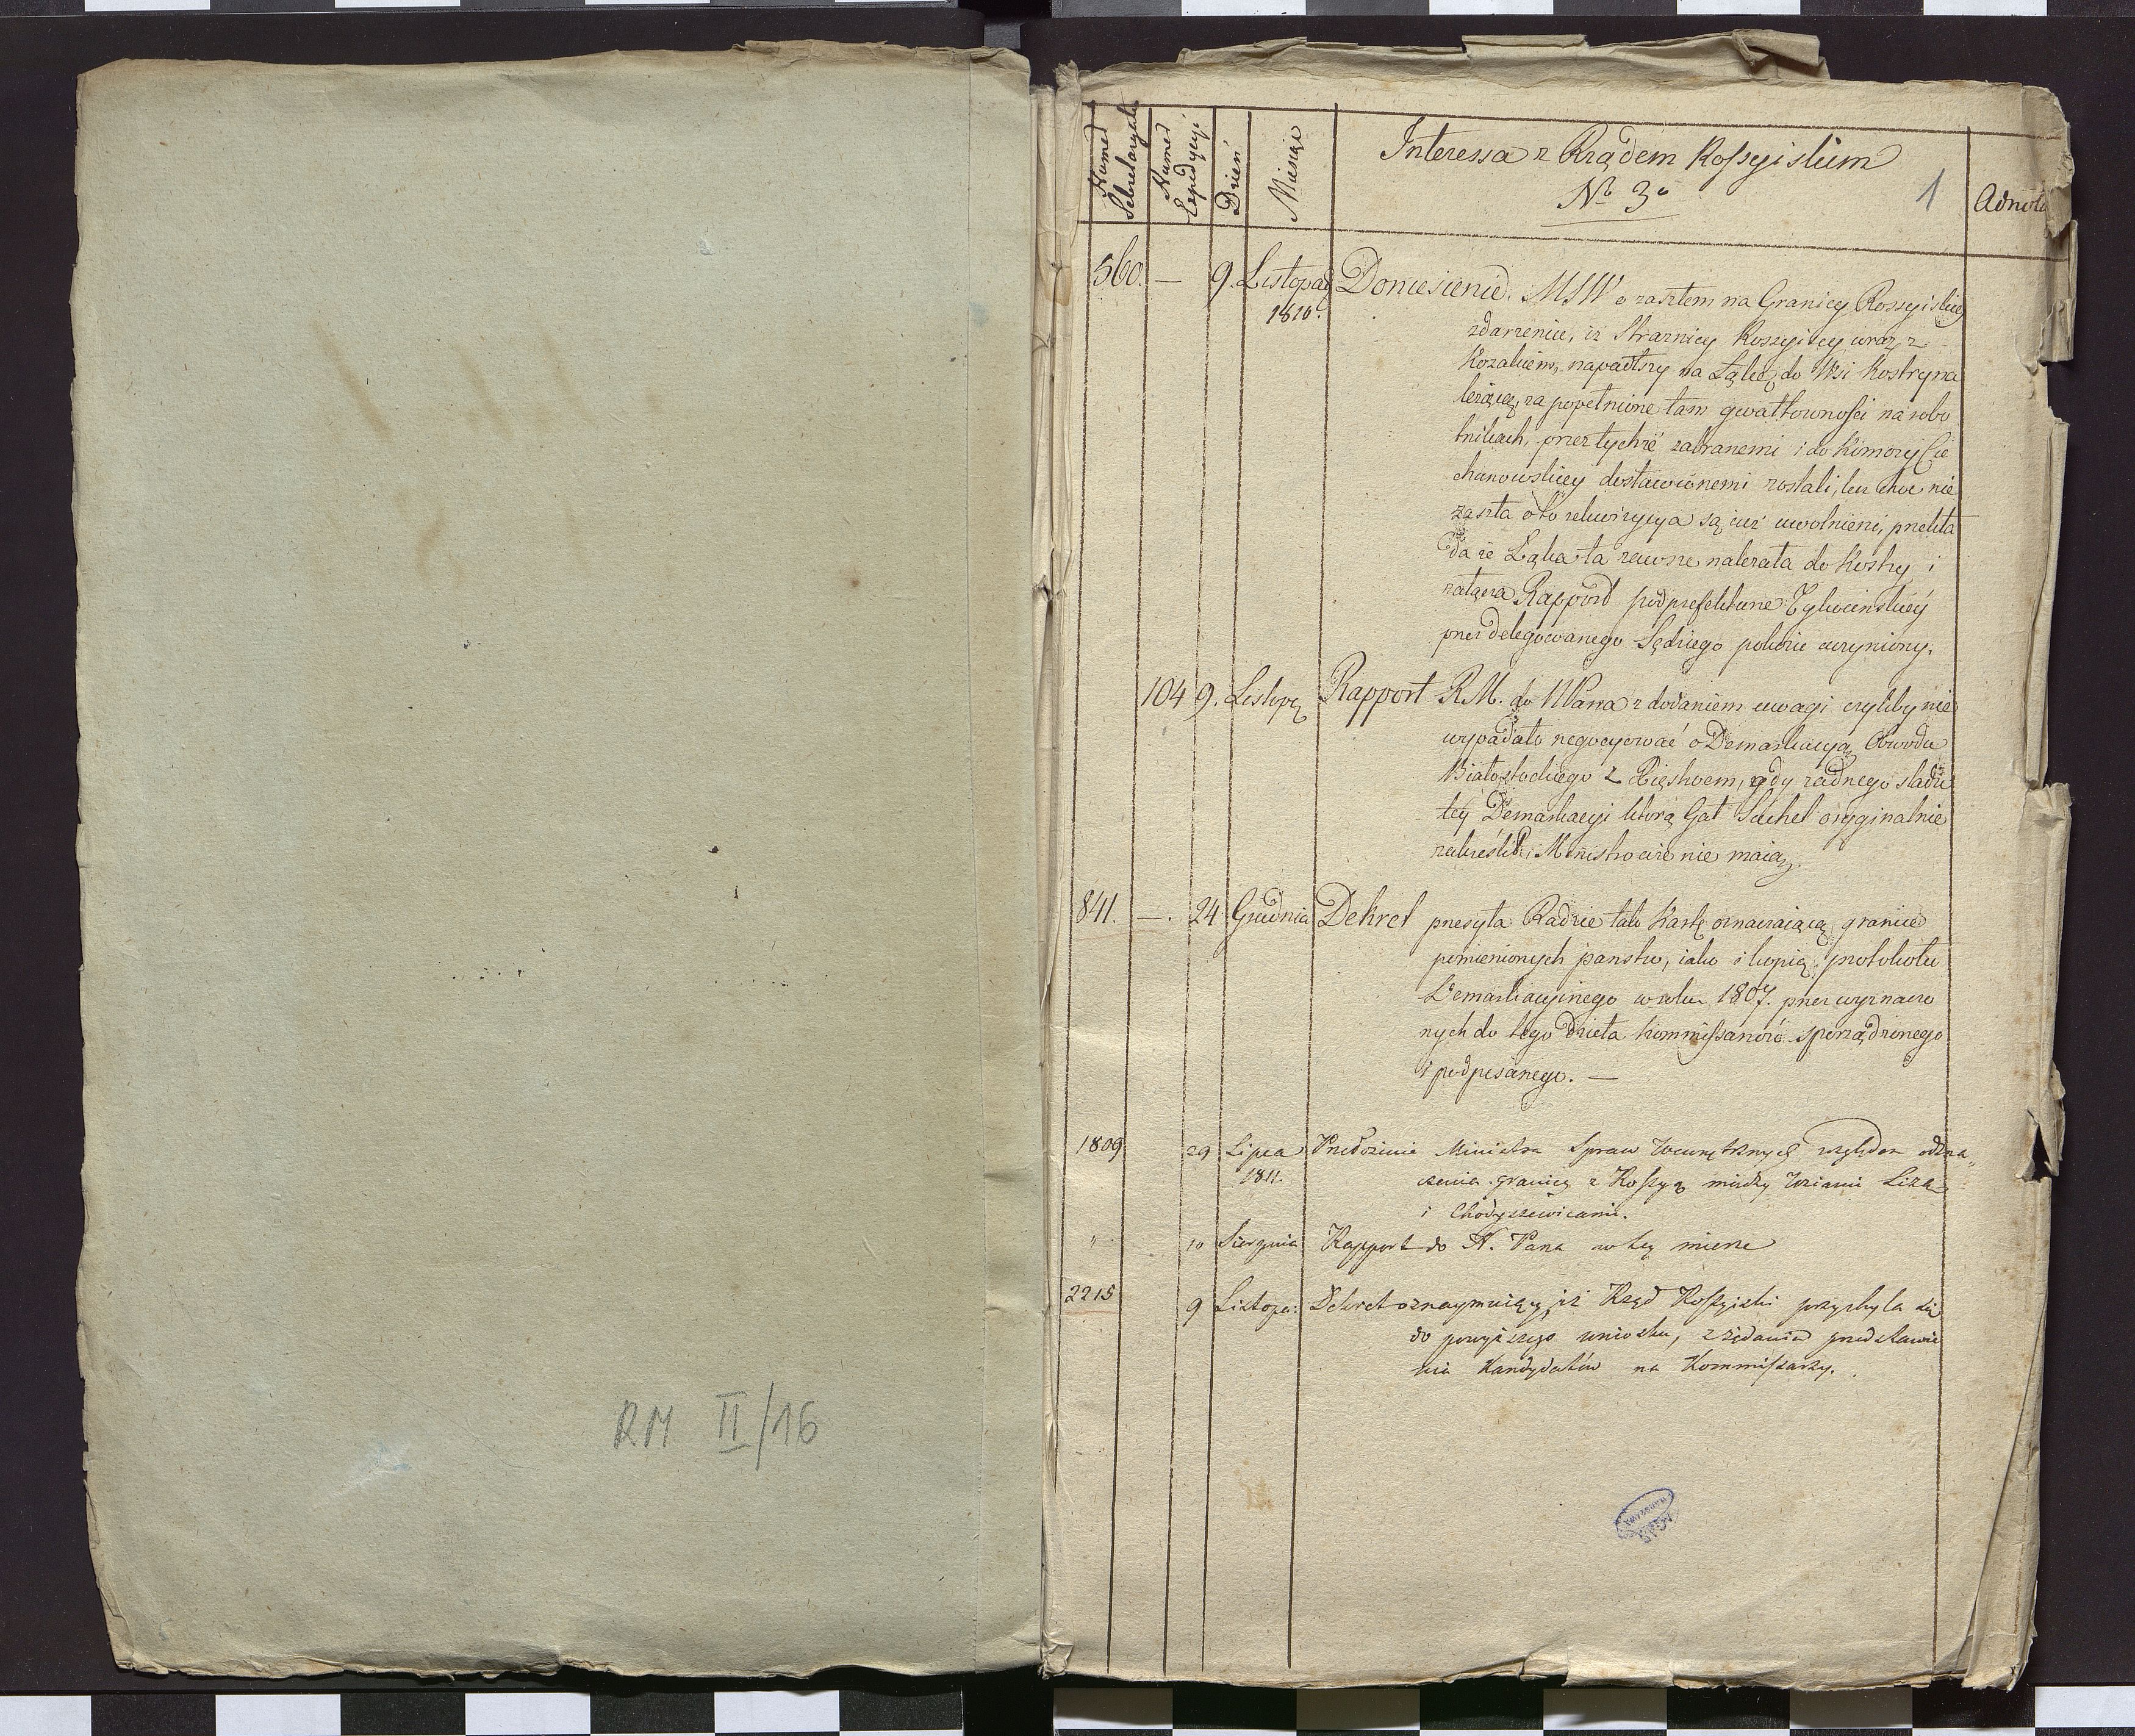 RM II/16
Numer Sekretaryatu
Numer Expedycyi
Dzień
Miesiąc
Interessa z Rządem Rossyiskim
No 3o
1
Adnota
560. — 9. Listopad 1810.
Doniesienie. MSW o zaszłem na Granicy Rossyiskiey
zdarzeniu, iż Strażnicy Rossyiscy wraz z
Kozakiem, napadłszy na Łąkę, do Wsi Kostry na
leżącą, za popełnione tam gwałtowności na robo
tnikach, przez tychże zabranemi i do Komory Cie
chanowskiey dostawionemi zostali, lecz choć nie
zaszła o to rekwizycya są już uwolnieni, przekła
da że Łąka ta zawsze należała do Kostry i
załącza Rapport podprefekturze Tykocinskiéy
przez delegowanego Sędziego pokoiu uczyniony.
104 9. Listopa
Rapport RM. do NPana z dodaniem uwagi czyliby nie
wypadało negocyować o Demarkacyą Obwodu
Białostockiego z Xięstwem, gdy żadnego sladu
tey Demarkacyi którą Gał Suchet oryginalnie
zakreślił, Ministrowie nie maią.
841. —. 24 Grudnia
Dekret przesyła Radzie tak Kartę oznaczaiącą granice
pomienionych panstw, iako i kopią protokołu
Demarkacyinego w roku 1807. przez wyznaczo
nych do tego dzieła Kommissarzów sporządzonego
i podpisanego. —
1809. 29 Lipca 1811.
Przełożenie Ministra Spraw Wewnętrznych względem odzna„
czenia granicy z Rossyą między Wsiami Liza
i Chodyszewicami.
" 10 Sierpnia Rapport do N. Pana w tey mierze
2215 9 Listopa:
Dekret oznaymuiący, iż Rząd Rossyiski przychyla się
do powyższego wniosku, z żądaniem przedstawie
nia Kandydatów na Kommissarzy.
AGAD
WARSZAWA